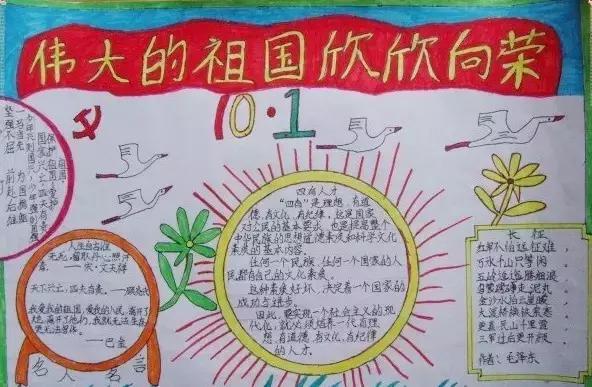 伟大的祖国欣欣向荣
10·1
四有人才
"四有"是理想,有道
德,有文化,有纪律,这是国家
对公民的基本要求,也是提高整个
中华民族的思想道德素质和科学文化
素质的基本内容。
任何一个民族,任何一个国家的人
民都有自己的文化素质。
这种素质好坏,决定着一个国家的
成功与进步。
因此,要实现一个社会主义的现
代化,就必须培养一代有理
想,有道德,有文化,有纪律
的人才。
人生自古谁
无死,留取丹心照汗
青。宋·文天祥
天下兴亡,匹夫有责。——顾炎武
我爱我的祖国,爱我的人民,离开了
她,离开了他们,我就无法生存
更无法写作。
——巴金
名人名言
长征
红军不怕远征难,
万水千山只等闲。
五岭逶迤腾细浪,
乌蒙磅礴走泥丸
金沙水拍云崖暖,
大渡桥横铁索寒
更喜岷山千里雪,
三军过后尽开颜。
作者:毛泽东